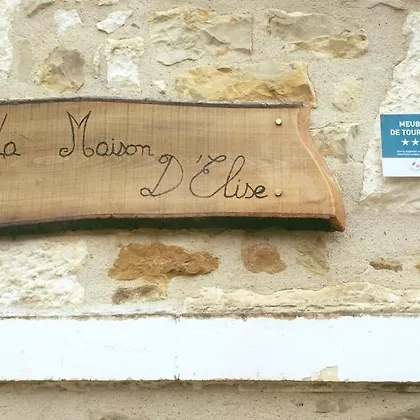 La Maison
D'Elise
MEUB
DE TOUR